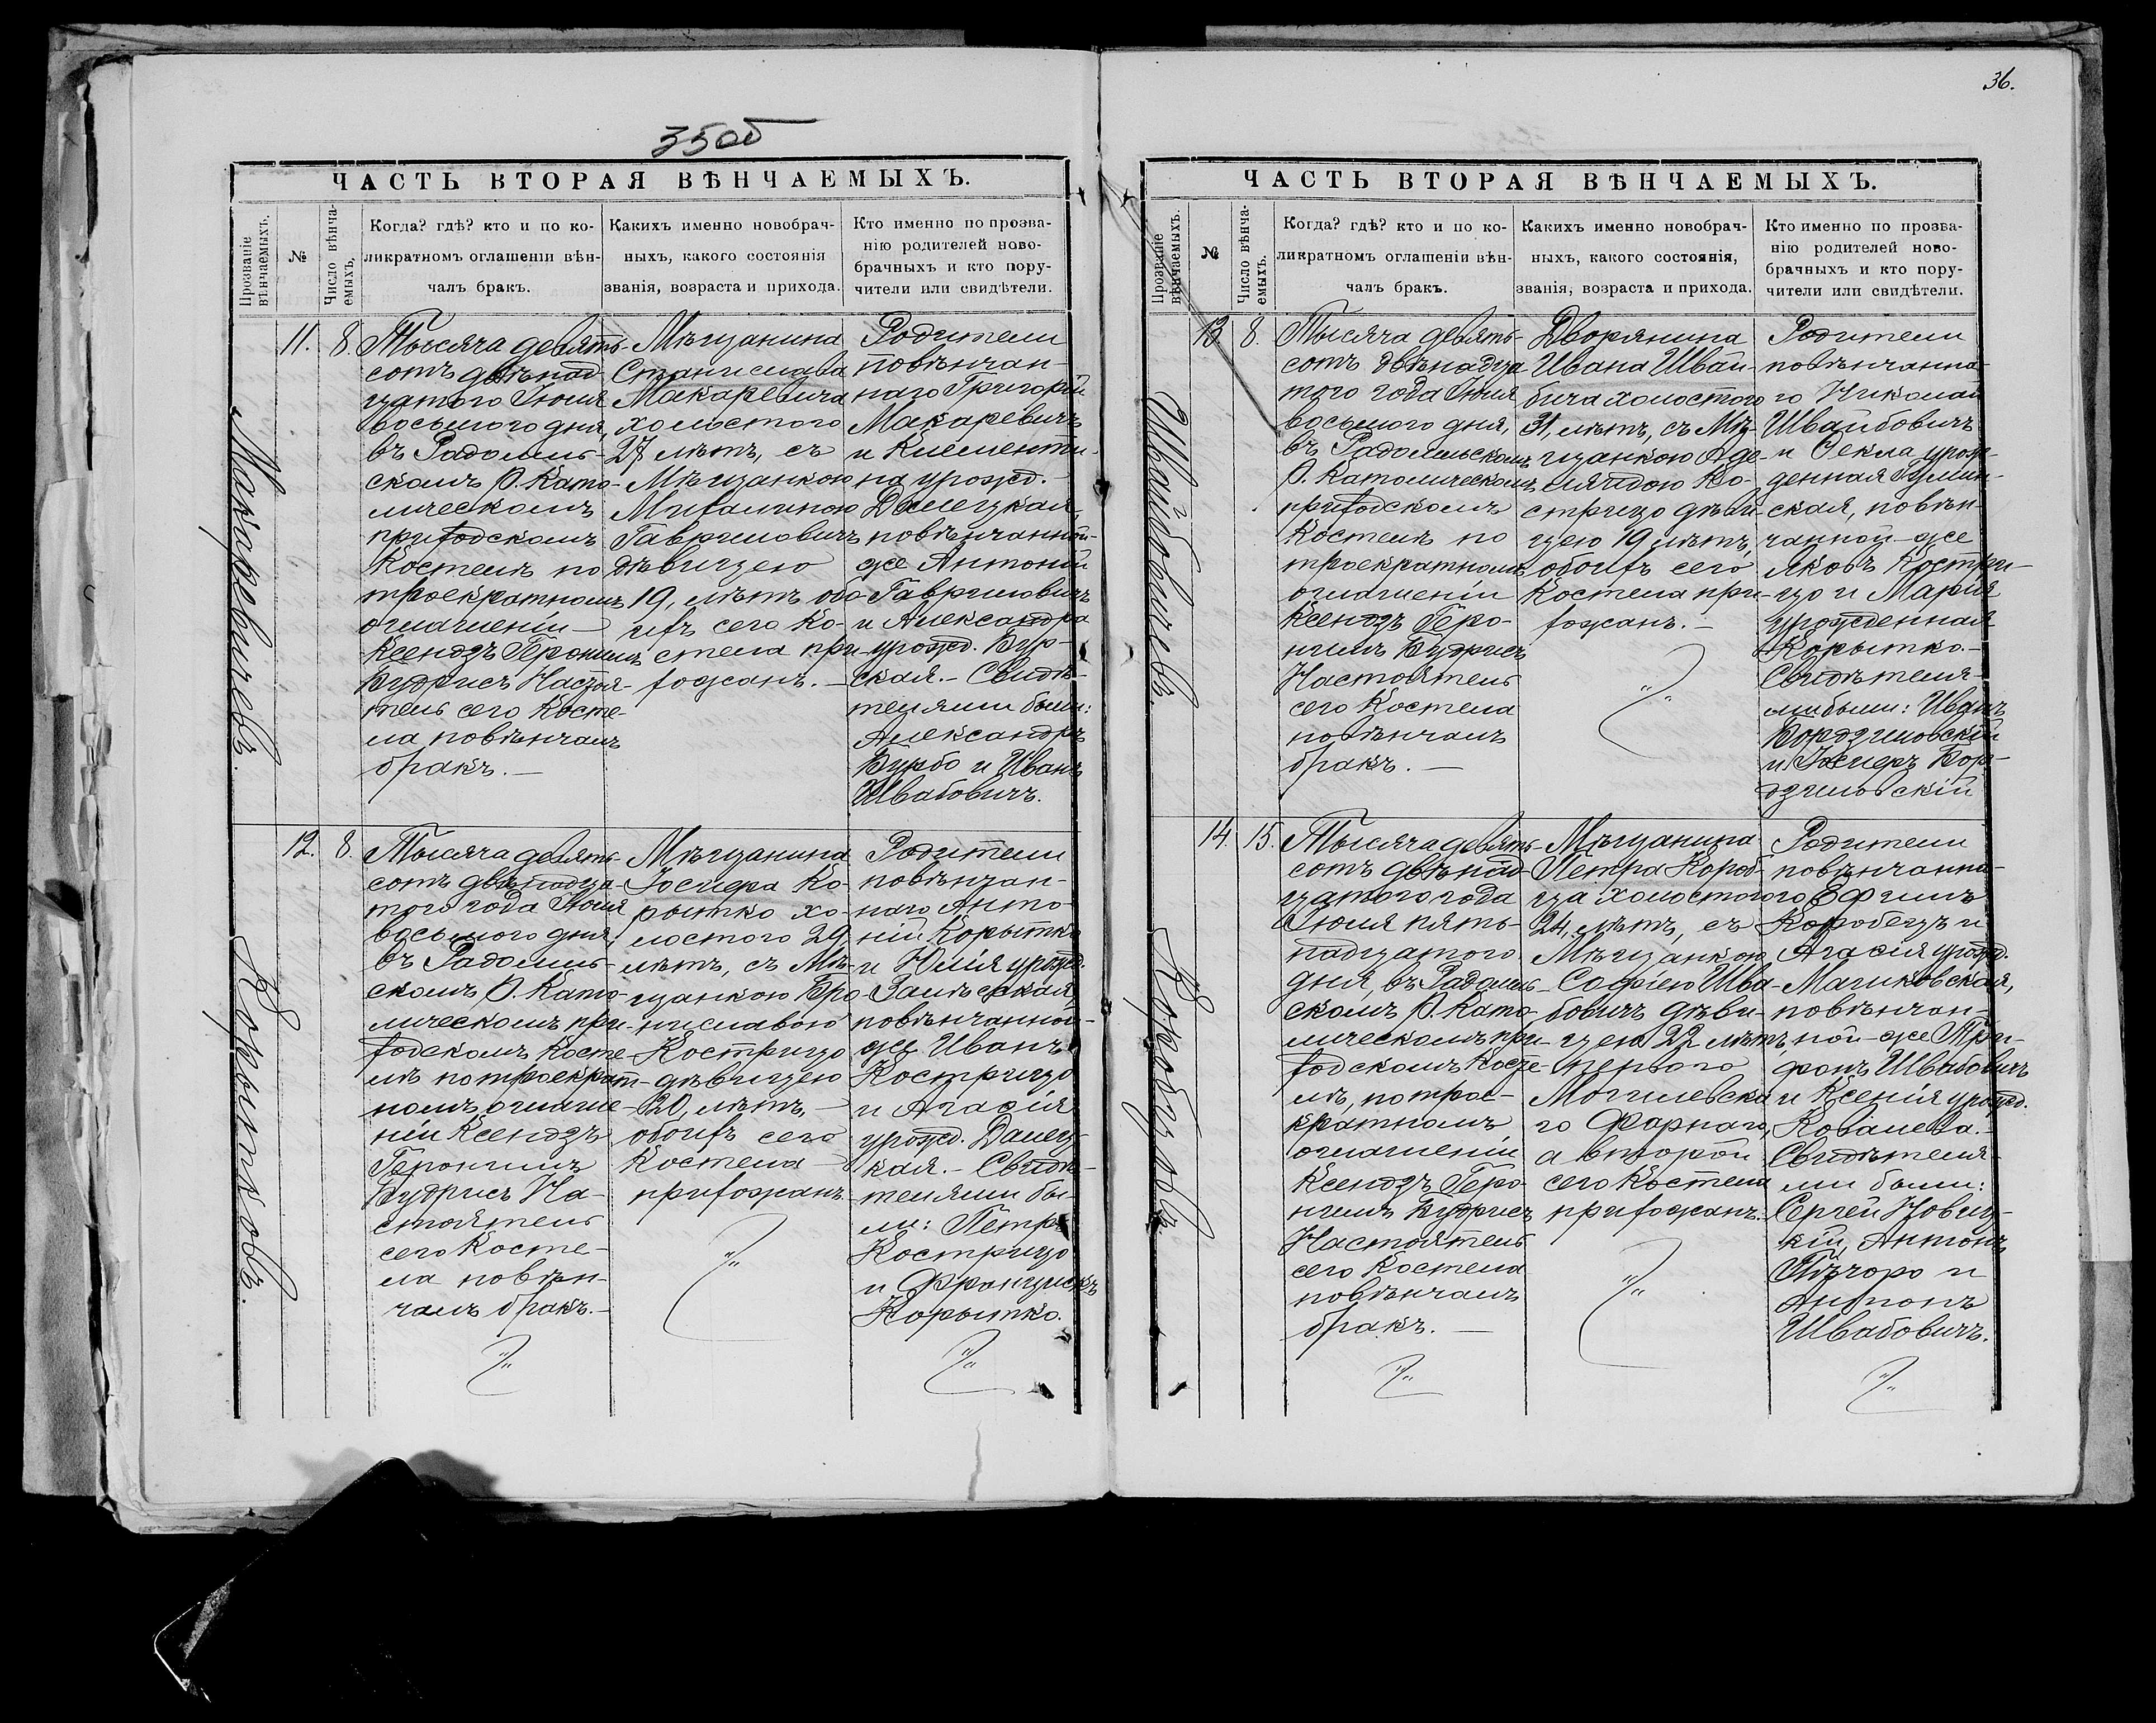 35об
ЧАСТЬ ВТОРАЯ ВѢНЧАЕМЫХЪ.
Прозваніе вѣнчаемыхъ.
№
Число вѣнчаемыхъ.
Когда? гдѣ? кто и по ко-
ликратномъ оглашеніи вѣн-
чалъ бракъ.
Какихъ именно новобрач-
ныхъ, какого состоянія
званія, возраста и прихода.
Кто именно по прозва-
нію родителей ново-
брачныхъ и кто пору-
чители или свидѣтели.
Макаревичевъ.
11.
8.
Тысяча девять-
сотъ двѣнад-
цатого Іюля
восьмого дня,
въ Радомль-
скомъ Р. Като-
лическомъ
приходскомъ
Костелѣ по
троекратномъ
оглашеніи
Ксендзъ Геронимъ
Будрисъ Настоя-
тель сего Косте-
ла повѣнчалъ
бракъ. —
Мѣщанина
Станислава
Макаревича
холостого
27 лѣтъ, съ
Мѣщанкою
Михалиною
Гавриловичъ
дѣвицею
19, лѣтъ обо-
ихъ сего Ко-
стела при-
хожанъ. —
Родители
повѣнчан-
наго Григорій
Макаревичъ
и Клементи-
на урожд.
Далецкая,
повѣнчанной-
же Антоній
Гавриловичъ
и Александра
урожд. Бур-
ская. — Свидѣ-
телями были:
Александръ
Бурбо и Иванъ
Швабовичъ.
Корытковъ.
12.
8.
Тысяча девять-
сотъ двѣнадца-
того года Іюля
восьмого дня,
въ Радомль-
скомъ Р. Като-
лическомъ при-
ходскомъ Косте-
лѣ по троекрат-
номъ оглаше-
ніи Ксендзъ
Геронимъ
Будрисъ На-
стоятель
сего Косте-
ла повѣн-
чалъ бракъ. —
Мѣщанина
Іосифа Ко-
рытко хо-
лостого 29,
лѣтъ, съ Мѣ-
щанкою Бро-
ниславою
Кострицо
дѣвицею
20, лѣтъ, —
обоихъ сего
Костела
прихожанъ
Родители
повѣнчан-
наго Анто-
ній Корытко
и Юлія урожд.
повѣнчанной-
же Иванъ
Кострицо
и Агафія
урожд. Далец-
кая. — Свидѣ-
телями бы-
ли: Петръ
Кострицо
и Францискъ
Корытко.
36.
ЧАСТЬ ВТОРАЯ ВѢНЧАЕМЫХЪ.
Прозваніе вѣнчаемыхъ.
№
Число вѣнчаемыхъ.
Когда? гдѣ? кто и по ко-
ликратномъ оглашеніи вѣн-
чалъ бракъ.
Какихъ именно новобрач-
ныхъ, какого состоянія,
званія, возраста и прихода.
Кто именно по прозва-
нію родителей ново-
брачныхъ и кто пору-
чители или свидѣтели.
Швайбовичевъ.
13
8.
Тысяча девять-
сотъ двѣнадца
того года Іюля
восьмого дня,
въ Радомльскомъ
Р. Католическомъ
приходскомъ
Костелѣ по
троекратномъ
оглашеніи
Ксендзъ Геро-
нимъ Будрисъ
Настоятель
сего Костела
повѣнчалъ
бракъ. —
Дворянина
Ивана Швай-
бича холостого
31, лѣтъ, съ Мѣ-
щанкою Аде-
ляидою Ко-
стрицо дѣви-
цею 19 лѣтъ,
обоихъ сего
Костела при-
хожанъ. —
Родители
повѣнчанна-
го Николай
Швайбовичъ
и Фекла урож-
денная
ская, повѣн-
чанной-же
Яковъ Костри-
цо и Марія
урожденная
Корытко. —
Свидѣтеля-
ми были: Иванъ
Бордзиловскій
и Іосифъ Бор-
дзиловскій
Коробцовъ
14.
15.
Тысяча девять-
сотъ двѣнад-
цатого года
Іюля пять-
надцатого
дня, въ Радомль-
скомъ Р. Като-
лическомъ при-
ходскомъ Косте-
лѣ, по трое-
кратномъ
оглашеніи
Ксендзъ Геро-
нимъ Будрисъ
Настоятель
сего Костела
повѣнчалъ
бракъ. —
Мѣщанина
Петра Короб-
ца холостого
24, лѣтъ, съ
Мѣщанкою
Софіею Шва-
бовичъ дѣви-
цею 22 лѣтъ,
перваго
Могилевска
го Фарнаго,
а второй
сего Костела
прихожанъ.
Родители
повѣнчанна-
го Ефимъ
Коробецъ и
Агафія урожд.
повѣнчан-
ной-же Три-
фонъ Швабовичъ
и Ксенія урожд.
Ковалева. —
Свидѣтеля-
ми были:
Сергѣй Новиц-
кій, Антонъ
и
Антонъ
Швабовичъ.